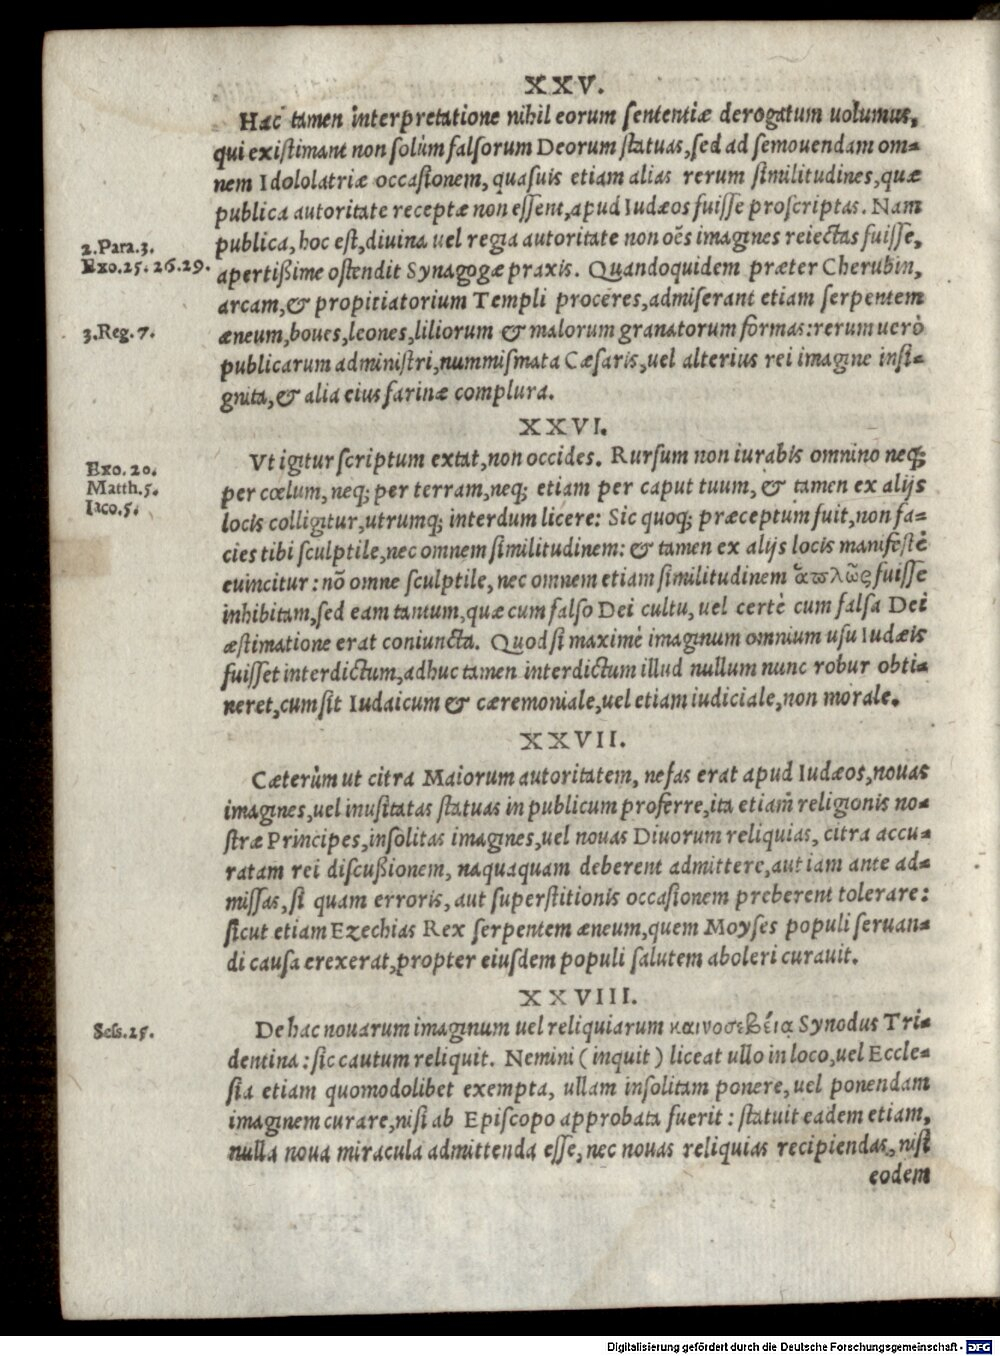 XXV.
Hac tamen interpretatione nihil eorum sententiæ derogatum uolumus,
qui existimant non solùm falsorum Deorum statuas, sed ad semouendam om=
nem Idololatriæ occasionem, quasuis etiam alias rerum similitudines, quæ
publica autoritate receptæ non essent, apud Iudæos fuisse proscriptas. Nam
2.Para.3. publica, hoc est, diuina uel regia autoritate non oēs imagines reiectas fuisse,
Exo.25.26.29. apertißime ostendit Synagogæ praxis. Quandoquidem præter Cherubin,
arcam, & propitiatorium Templi proceres, admiserant etiam serpentem
3.Reg.7. æneum, boues, leones, liliorum & malorum granatorum formas: rerum uerò
publicarum administri, nummismata Cæsaris, uel alterius rei imagine insi=
gnita, & alia eius farinæ complura.
XXVI.
Vt igitur scriptum extat, non occides. Rursum non iurabis omnino neq;
Exo.20. per cœlum, neq; per terram, neq; etiam per caput tuum, & tamen ex alijs
Matth.5. locis colligitur, utrumq; interdum licere: Sic quoq; præceptum fuit, non fa=
Iaco.5. cies tibi sculptile, nec omnem similitudinem: & tamen ex alijs locis manifestè
euincitur: nō omne sculptile, nec omnem etiam similitudinem ἁπλῶς fuisse
inhibitam, sed eam tantum, quæ cum falso Dei cultu, uel certè cum falsa Dei
æstimatione erat coniuncta. Quod si maximè imaginum omnium usu Iudæis
fuisset interdictum, adhuc tamen interdictum illud nullum nunc robur obti=
neret, cum sit Iudaicum & cæremoniale, uel etiam iudiciale, non morale.
XXVII.
Cæterùm ut citra Maiorum autoritatem, nefas erat apud Iudæos, nouas
imagines, uel inusitatas statuas in publicum proferre, ita etiam religionis no=
stræ Principes, insolitas imagines, uel nouas Diuorum reliquias, citra accu=
ratam rei discußionem, naquaquam deberent admittere, aut iam ante ad=
missas, si quam erroris, aut superstitionis occasionem preberent tolerare:
sicut etiam Ezechias Rex serpentem æneum, quem Moyses populi seruan=
di causa erexerat, propter eiusdem populi salutem aboleri curauit.
XXVIII.
Sess.25. De hac nouarum imaginum uel reliquiarum καινοσεβεία Synodus Tri=
dentina: sic cautum reliquit. Nemini (inquit) liceat ullo in loco, uel Eccle=
sia etiam quomodolibet exempta, ullam insolitam ponere, uel ponendam
imaginem curare, nisi ab Episcopo approbata fuerit: statuit eadem etiam,
nulla noua miracula admittenda esse, nec nouas reliquias recipiendas, nisi
eodem
Digitalisierung gefördert durch die Deutsche Forschungsgemeinschaft - DFG